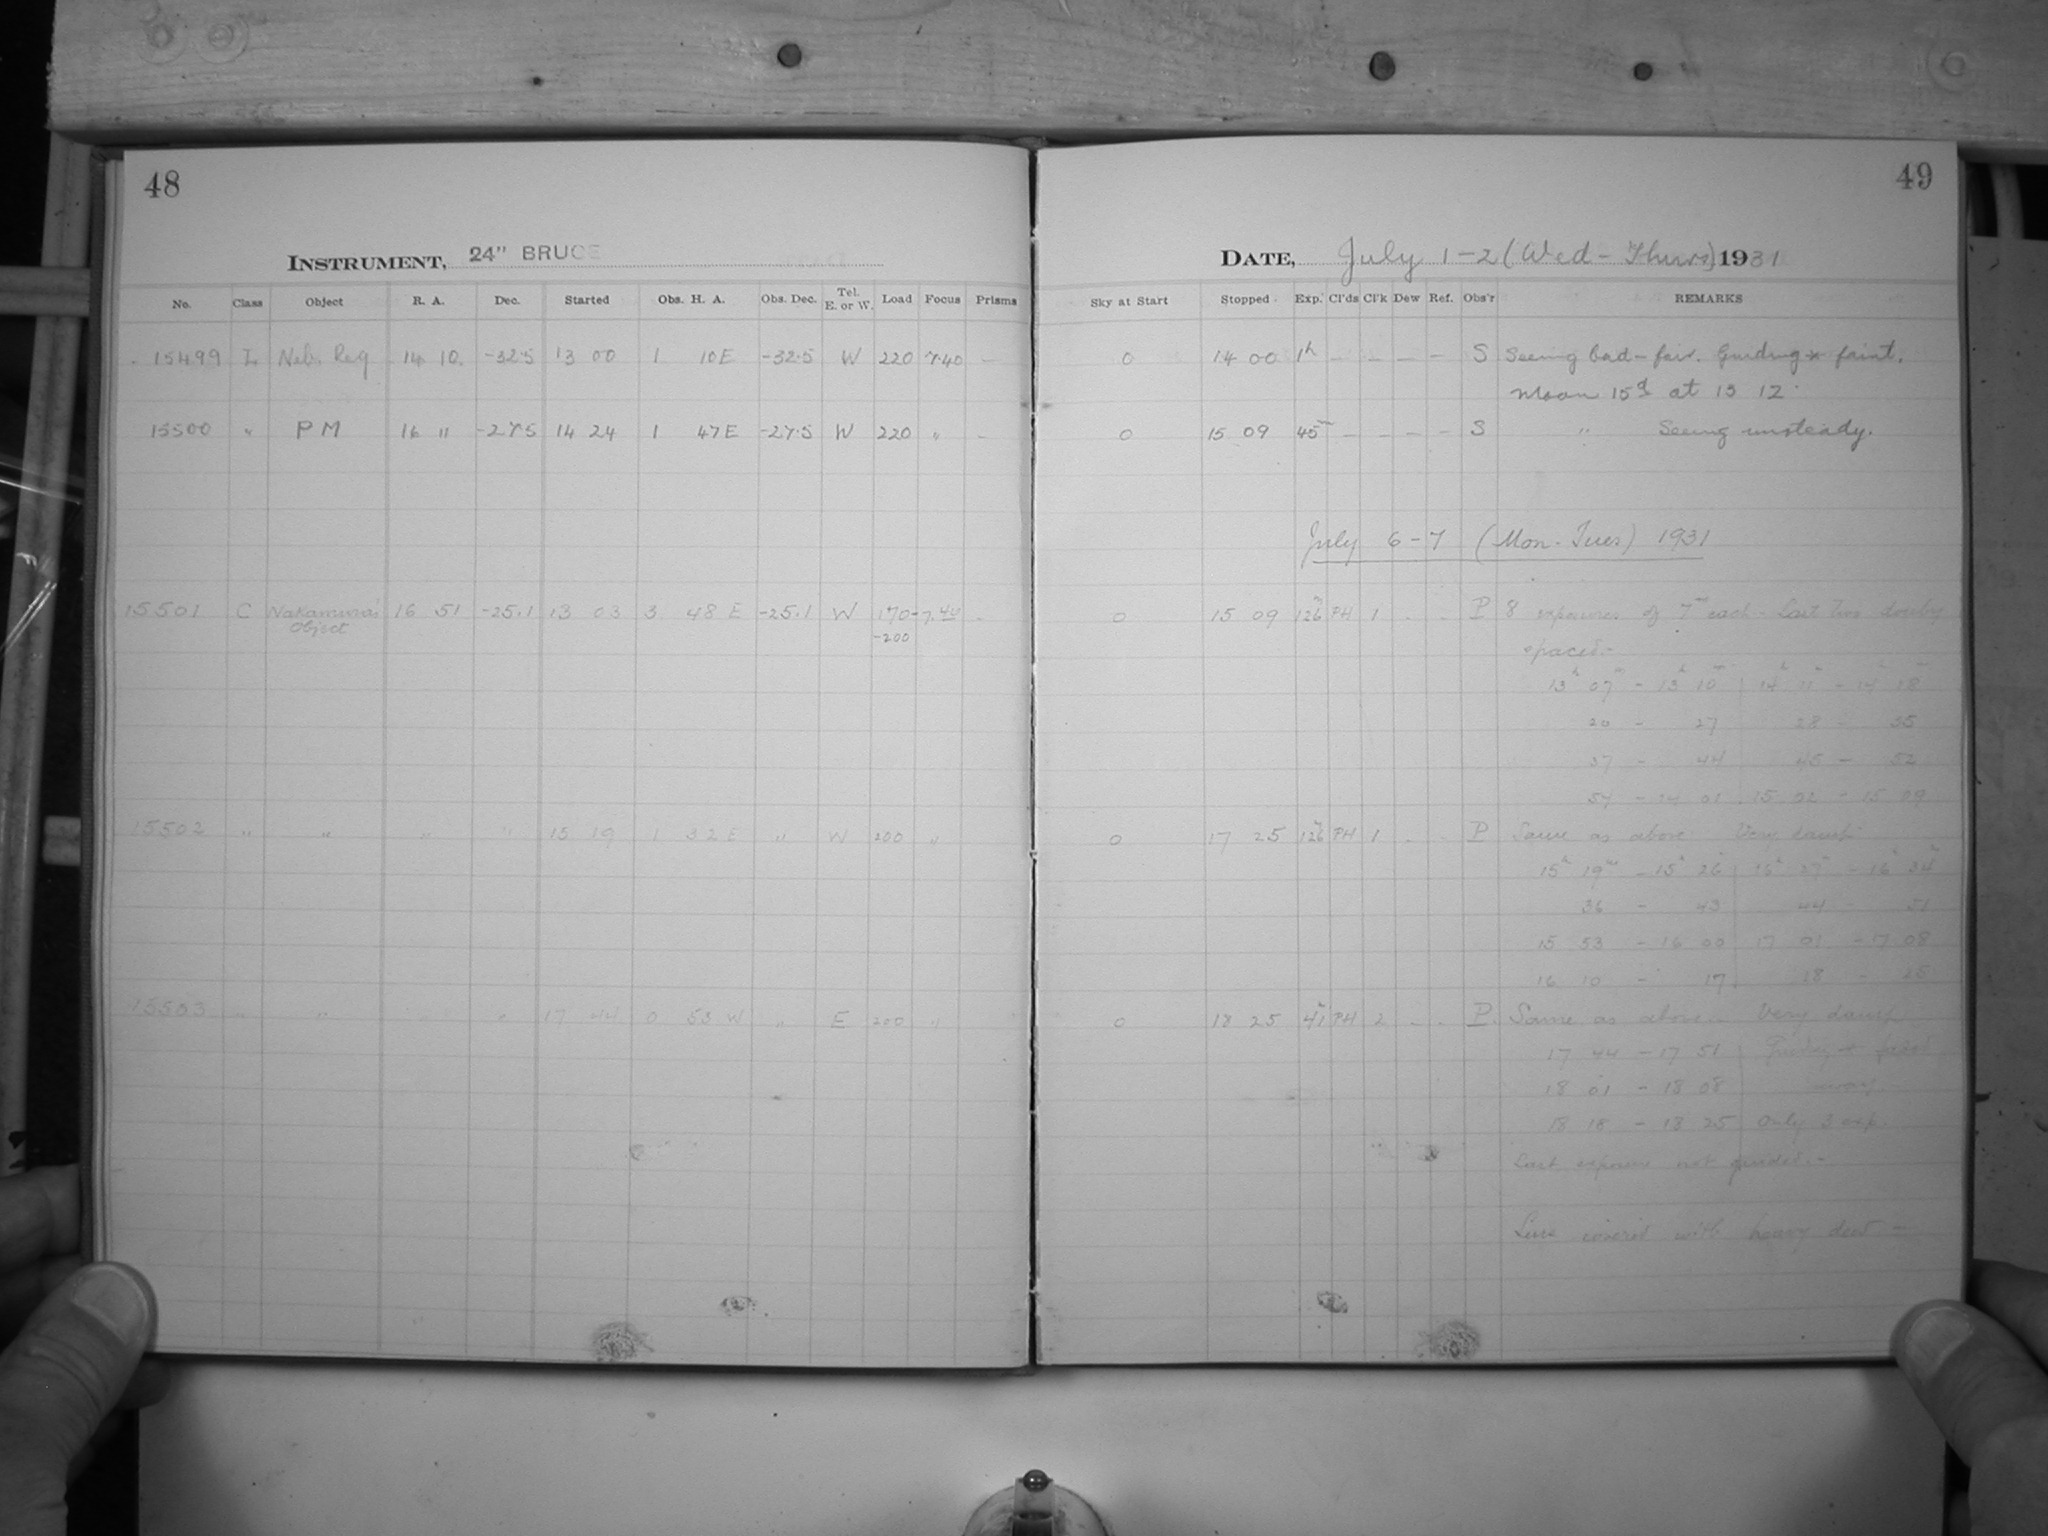 48
INSTRUMENT, 24" BRUCE
No. Class Object R. A. Dec. Started Obs. H. A. Obs. Dec. Tel. E. or W. Load Focus Prisms
15499 L Neb. Reg 14 10 -32.5 13 00 1 10 E -32.5 W 220 7.40 —
15500 " P M 16 " -27.5 14 24 1 47 E -27.5 W 220 " -
15501 C Nakamura's 16 51 -25.1 13 03 3 48 E -25.1 W 170- 7.40 -
Object -200
15502 " " " " 15 19 1 32 E " W 200 "
15503 " " " " 17 44 0 53 W " E 200 "
49
DATE, July 1-2 (Wed - Thurs) 1931
Sky at Start Stopped Exp. Cl'ds Cl'k Dew Ref. Obs'r REMARKS
0 14 00 1h — — — — S Seeing bad - fair. Guiding * faint.
Moon 15d at 13 12.
0 15 09 45m — — — — S " Seeing unsteady.
July 6-7 (Mon. Tues) 1931
0 15 09 126m PH 1 . . P 8 exposures of 7m each - Last two doubly
spaced.-
13h 07m - 13h 10m 14h 11m - 14h 18m
20 - 27 28 - 35
37 - 44 45 - 52
54 - 14 01 15 02 - 15 09
0 17 25 126m PH 1 . . P Same as above. Very damp
15h 19m - 15h 26 16h 27m - 16h 34m
36 - 43 44 - 51
15 53 - 16 00 17 01 - 17 08
16 10 - 17 18 - 25
0 18 25 41m PH 2 . . P. Same as above - Very damp
17 44 - 17 51 Guiding * faded
18 01 - 18 08 away
18 18 - 18 25 Only 3 exp.
Last exposure not guided. -
Lens covered with heavy dew -